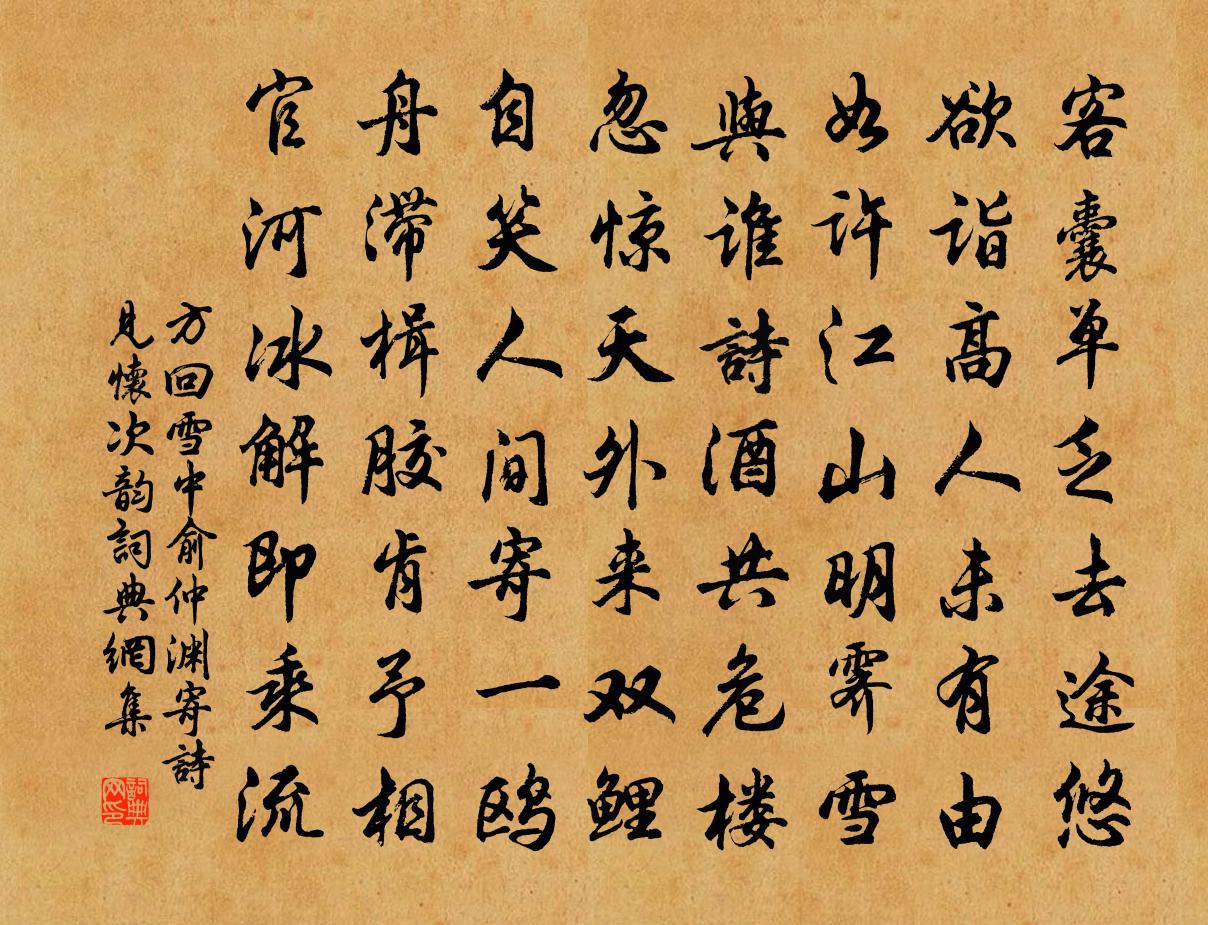 客囊单乏去途悠
欲诣高人未有由
如许江山明霁雪
與谁詩酒共危楼
忽惊天外来双鲤
自笑人间寄一鸥
舟滞楫胶肯予相
官河冰解即乘流
方回雪中俞仲渊寄詩
見懷次韵詞典網集
詞典网印